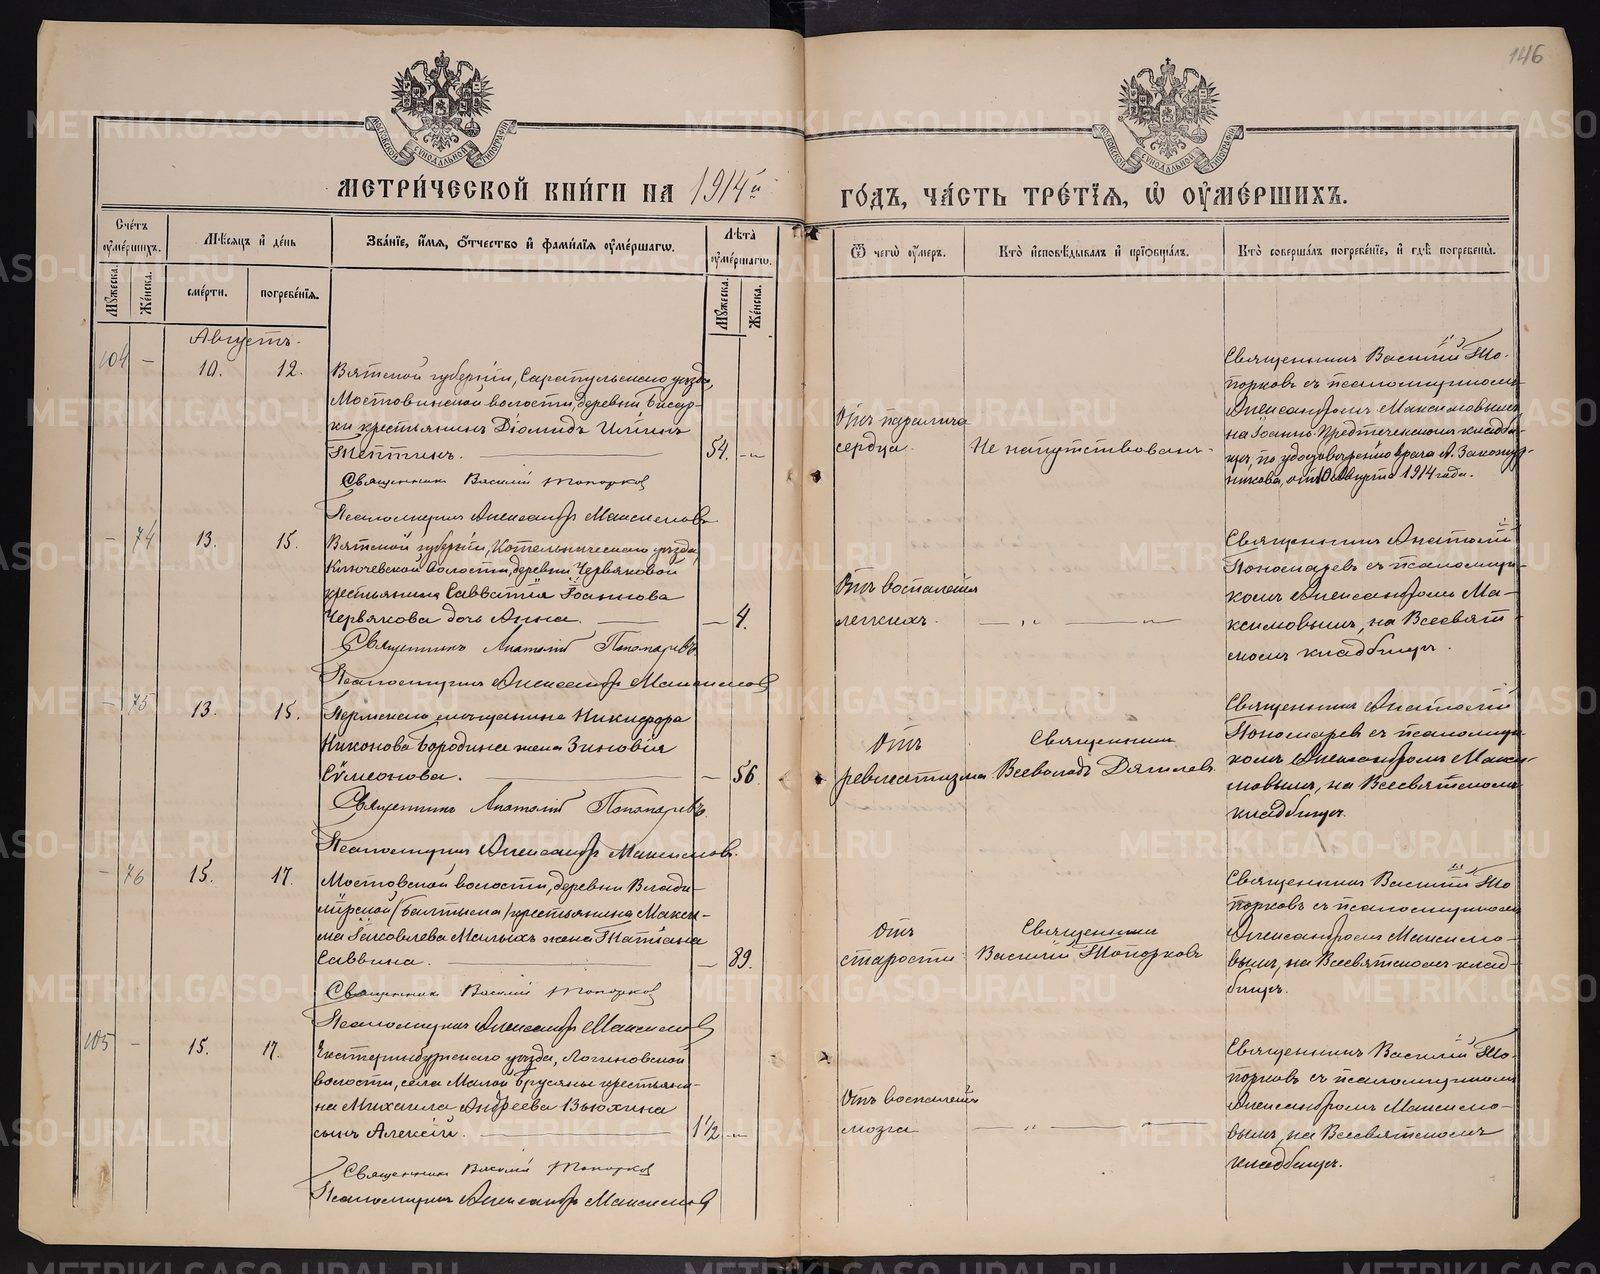 146
МЕТРИ́ЧЕСКОЙ КНИ́ГИ НА 1914й
ГО́ДЪ, ЧА́СТЬ ТРЕ́ТЇЯ, Ѡ҆ ОУ҆МЕ́РШИХЪ.
Сче́тъ оу҆ме́ршихъ.
Мѣ́сяцъ и҆ де́нь
Зва́нїе, и҆́мя, ѻ҆́тчество и҆ фами́лїя оу҆ме́ршагѡ.
Лѣ́та оу҆ме́ршагѡ.
Ѿ чегѡ̀ оу҆́меръ.
Кто̀ и҆сповѣ́дывалъ и҆ прїѡбща́лъ.
Кто̀ соверша́лъ погребе́нїе, и҆ гдѣ̀ погребены̀.
Мꙋ́жеска.
Же́нска.
сме́рти.
погребе́нїя.
Мꙋ́жеска.
Же́нска.
Августъ.
104 — 10. 12.
Вятской губерніи, Сарапульскаго уѣзда,
Мостовинской волости, деревни Бисар-
ки крестьянинъ Діомидъ Иліинъ
Тептинъ. 54. —„—
Священникъ Василій Топорковъ
Псаломщикъ Александръ Максимовъ
Отъ паралича
сердца.
Не напутствованъ.
Священникъ Василій То-
порковъ съ псаломщикомъ
Александромъ Максимовымъ
на Іоанно-Предтеченскомъ кладби-
щѣ, по удостовѣренію врача А.
отъ 10 Августа 1914 года.
— 74 13. 15.
Вятской губерніи, Котельническаго уѣзда,
Ключевской волости, деревни Червяковой
крестьянина Савватія Іоаннова
Червякова дочь Анна. — 4.
Священникъ Анатолій Пономаревъ
Псаломщикъ Александръ Максимовъ
Отъ воспаленія
легкихъ.
— „ — — „ —
Священникъ Анатолій
Пономаревъ съ псаломщи-
комъ Александромъ Ма-
ксимовымъ, на Всесвят-
скомъ кладбищѣ.
— 75 13. 15.
Пермскаго мѣщанина Никифора
Никонова Бородина жена Зиновія
Сѵмеонова. — 56.
Священникъ Анатолій Пономаревъ
Псаломщикъ Александръ Максимовъ.
Отъ
ревматизма
Священникъ
Всеволодъ Дягилевъ
Священникъ Анатолій
Пономаревъ съ псаломщи-
комъ Александромъ Макси-
мовымъ, на Всесвятскомъ
кладбищѣ.
— 76 15. 17.
Мостовской волости, деревни Влади-
мірской /Балтыма/ крестьянина Макси-
ма Іаковлева Малыхъ жена Татіана
Саввина. — 89.
Священникъ Василій Топорковъ
Псаломщикъ Александръ Максимовъ
Отъ
старости
Священникъ
Василій Топорковъ
Священникъ Василій То-
порковъ съ псаломщикомъ
Александромъ Максимо-
вымъ, на Всесвятскомъ клад-
бищѣ.
105 — 15. 17.
Екатеринбургскаго уѣзда, Логиновской
волости, села Малой Брусяны крестьяни-
на Михаила Андреева Вьюхина
сынъ Алексій. 1½ —„—
Священникъ Василій Топорковъ
Псаломщикъ Александръ Максимовъ
Отъ воспаленія
мозга
— „ — — „ —
Священникъ Василій То-
порковъ съ псаломщикомъ
Александромъ Максимо-
вымъ, на Всесвятскомъ
кладбищѣ.
METRIKI.GASO-URAL.RU